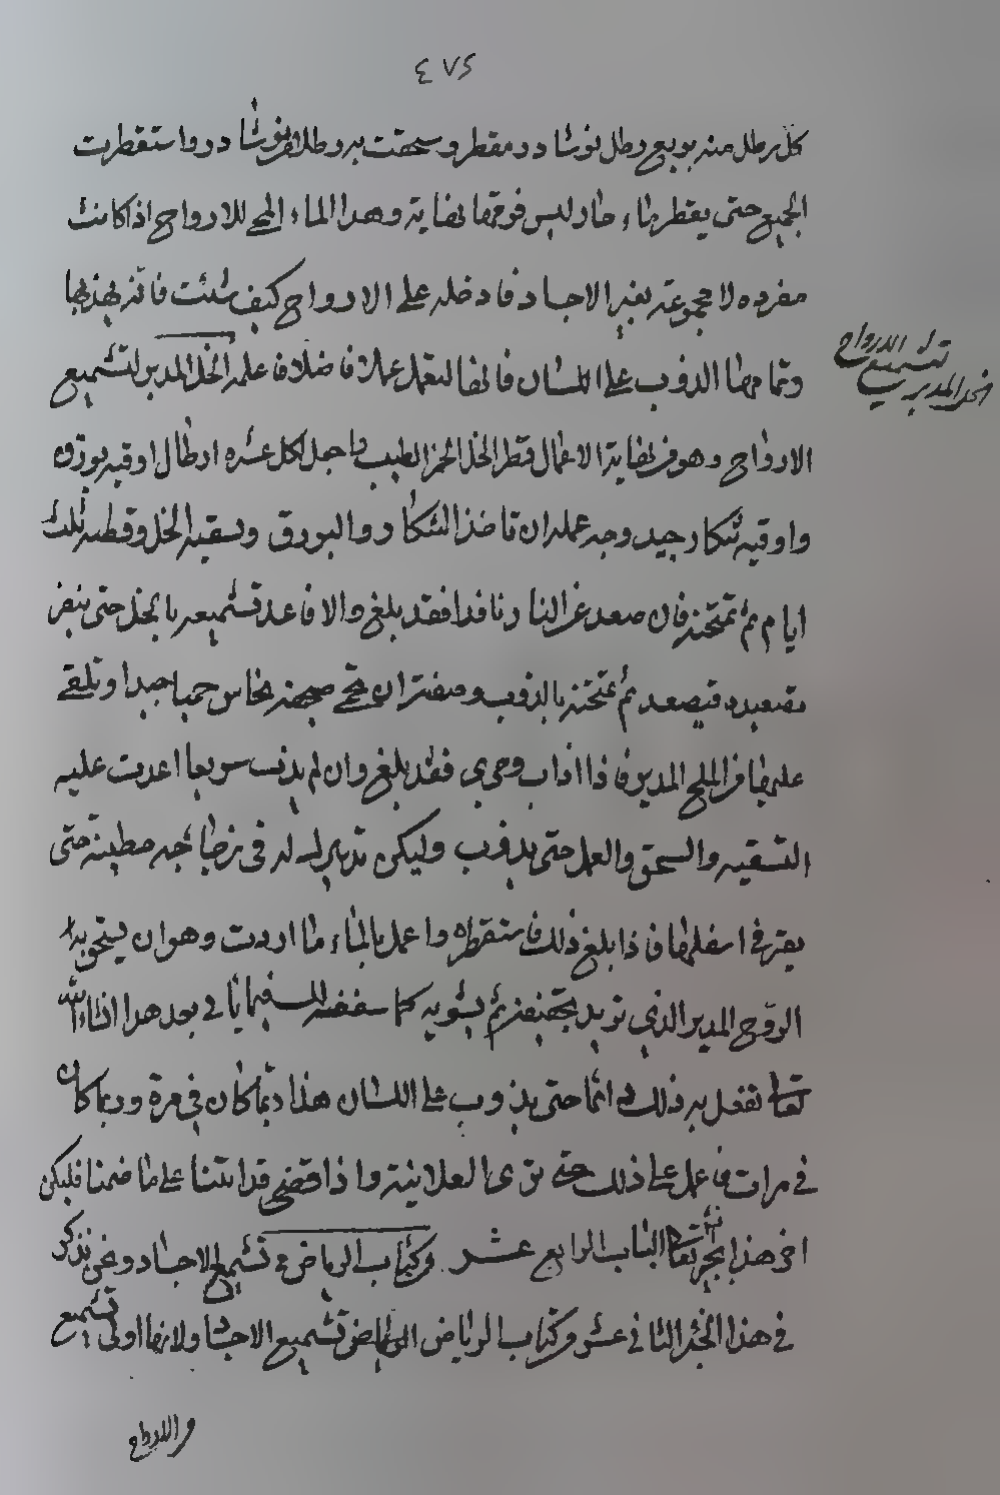 ٤٧٤
كل رطل منه بربع رطل نوشادر مقطر وسحقت به رطلا من نوشادر واستقطرت
الجميع حتى يقطر ماء حار ليس فوقها نهاية وهذا الماء المحي للارواح اذا كانت
مفرده لا مجموعة بغير الاجساد فادخله على الارواح كيف شئت فانه يهذبها
وتمامها الذوب على اللسان فانها لتعمل عملا فاضلا فاعلمه الخل المدبر لتشميع
الارواح وهو في نهاية الاعمال قطر الخل الخمر الطيب واجعل لكل عشره ارطال اوقيه بورق
واوقيه تنكار جيد وجه عمله ان تاخذ التنكار والبورق وتسقيه الخل وقطره ثلث
ايام ثم تمتحنه فان صعد عن النار نافدا فقد بلغ والا فاعد تشميعه بالخل حتى ينفر
تصعيده فيصعد ثم تمتحنه بالذوب وصفته ان تحمي صحيفه نحاس حميا جيدا وتلقي
عليها من الملح المدبر فاذا ذاب وجرى فقد بلغ وان لم يذب سريعا اعدت عليه
التسقيه والسحق والعمل حتى يذوب وليكن تدبيرك له في زجاجه مطينة حتى
يقر في اسفلها فاذا بلغ ذلك فاستقطره واعمل بالماء ما اردت وهو ان يسحق به
الروح المدبر الذي تريد تجفيفه ثم يشويه كما سنصف لك فيما ياتي بعد هذا ان شاء الله
تعالى تفعل به ذلك دائما حتى يذوب على اللسان هذا ربما كان في مرة وربما كان
في مرات فاعمل على ذلك حتى ترى العلانية واذا قضى قد اتينا على ما ضمنا فليكن
اخر هذا الجزء تم الباب الرابع عشر من كتاب الرياض في تشميع الاجساد ونحن نذكر
في هذا الجزء الثاني عشر من كتاب الرياض تشميع الاجساد ولانها اولى تشميع
والارواح
تشميع الارواح
الخل المدبر